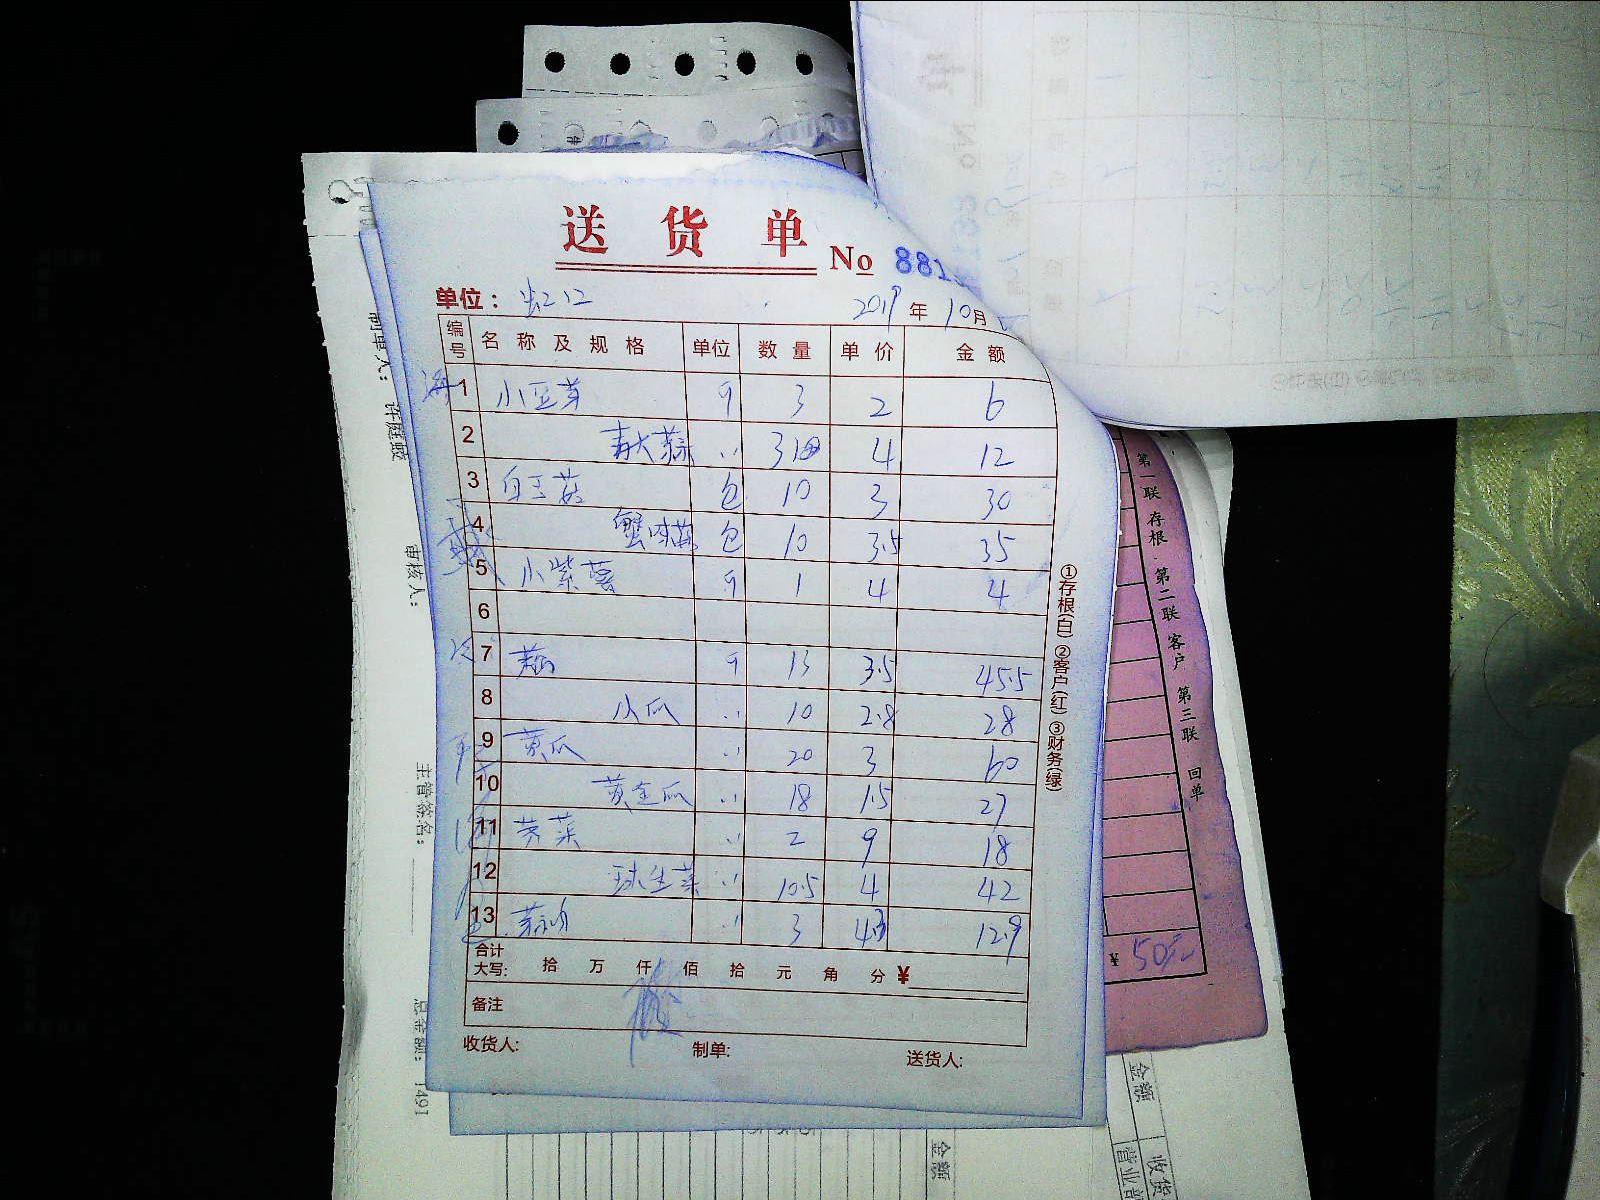 送货单 No 881
单位： 虹口 2019年10月
编号 名称及规格 单位 数量 单价 金额
1 小豆芽 斤 3 2 6
2 青大蒜 〃 3 4 12
3 白玉菇 包 10 3 30
4 蟹味菇 包 10 3.5 35
5 小紫薯 斤 1 4 4
6
7 斤 13 3.5 45.5
8 小瓜 〃 10 2.8 28
9 黄瓜 〃 20 3 60
10 黄金瓜 〃 18 1.5 27
11 芥菜 〃 2 9 18
12 球生菜 〃 10.5 4 42
13 〃 3 4.3 12.9
合计大写： 拾 万 仟 佰 拾 元 角 分 ¥
备注
收货人: 制单: 送货人:
①存根(白) ②客户(红) ③财务(绿)
第一联 存根 第二联 客户 第三联 回单
¥ 50元
审核人：
主管签名：
总金额： 1491
金额
金额
收货
营业